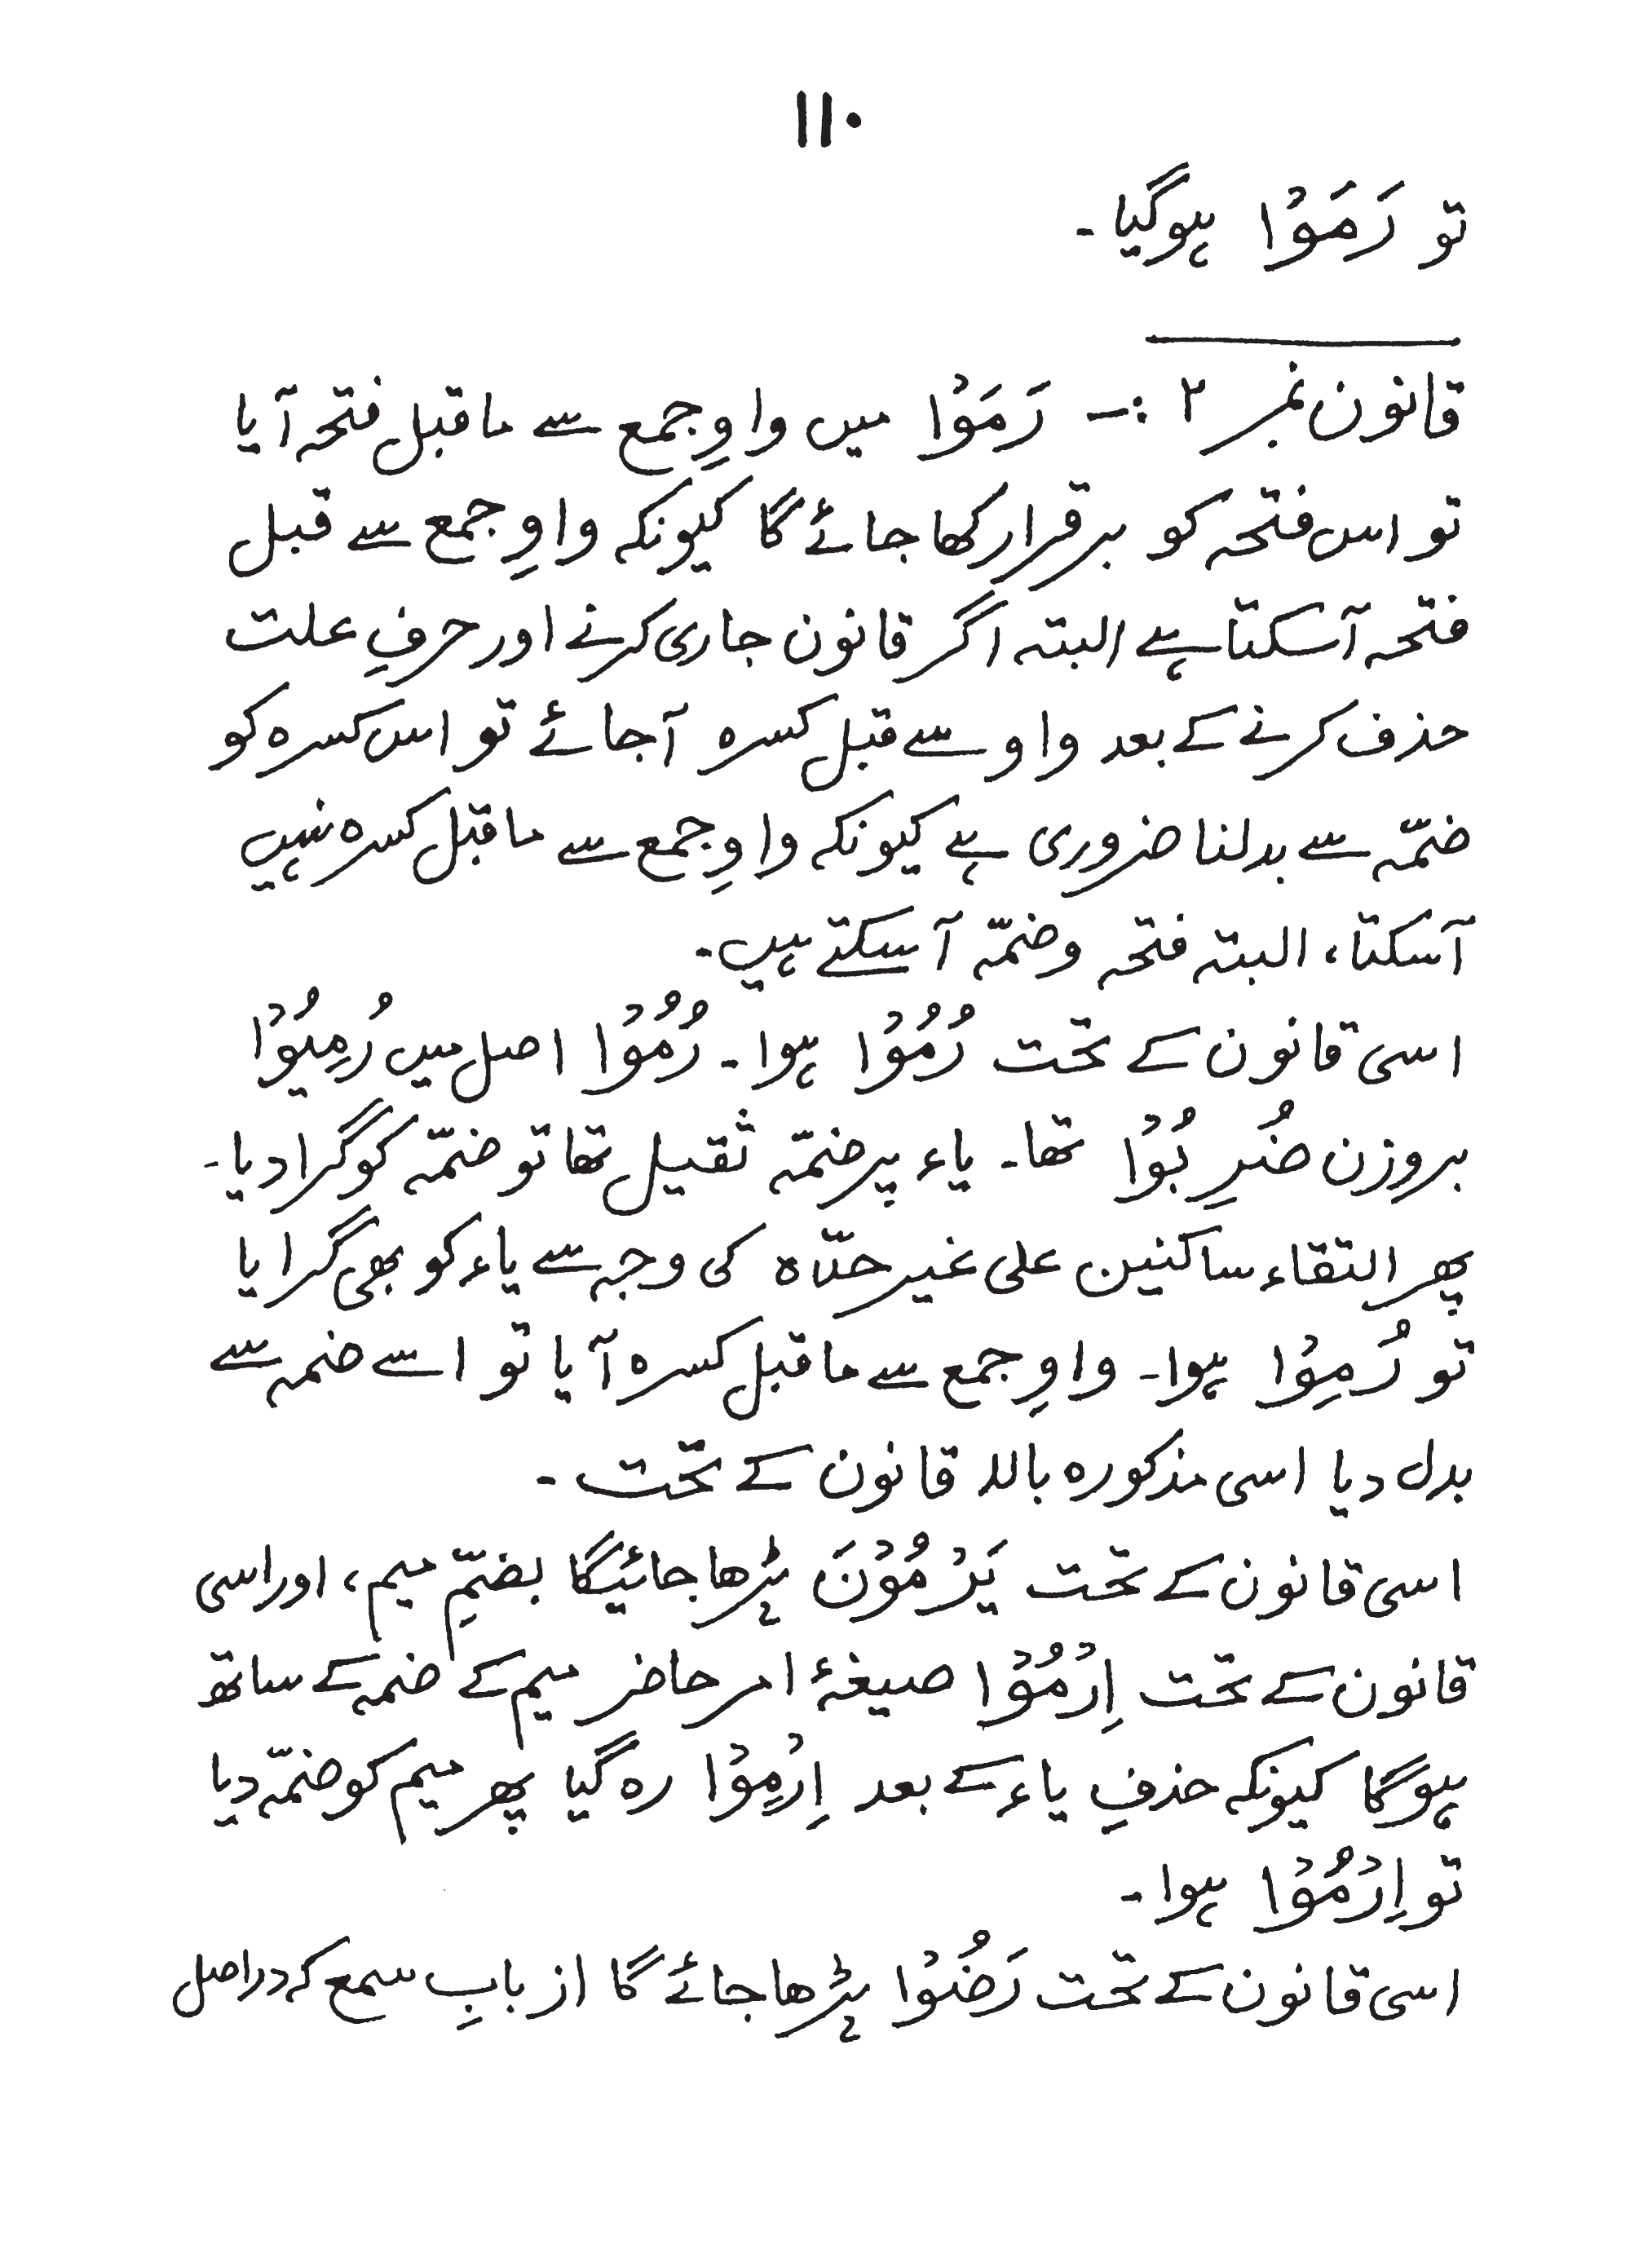 ۱۱۰
تو رَمَوْا ہوگیا۔
قانون نمبر ۲ :- رَمَوْا میں واوِ جمع سے ماقبل فتحہ آیا
تو اس فتحہ کو برقرار رکھا جائے گا کیونکہ واوِ جمع سے قبل
فتحہ آسکتا ہے البتہ اگر قانون جاری کرنے اور حرفِ علت
حذف کرنے کے بعد واو سے قبل کسرہ آجائے تو اس کسرہ کو
ضمّہ سے بدلنا ضروری ہے کیونکہ واوِ جمع سے ماقبل کسرہ نہیں
آسکتا، البتہ فتحہ وضمّہ آسکتے ہیں۔
اسی قانون کے تحت رُمُوْا ہوا۔ رُمُوْا اصل میں رُمِیُوْا
بروزن ضُرِبُوْا تھا۔ یاء پر ضمّہ ثقیل تھا تو ضمّہ کو گرادیا۔
پھر التقاء ساکنین علی غیر حدّہ کی وجہ سے یاء کو بھی گرایا
تو رُمِوْا ہوا۔ واوِ جمع سے ماقبل کسرہ آیا تو اسے ضمہ سے
بدل دیا اسی مذکورہ بالا قانون کے تحت۔
اسی قانون کے تحت یَرْمُوْنَ پڑھا جائیگا بضمِّ میم، اور اسی
قانون کے تحت اِرْمُوْا صیغۂ امر حاضر میم کے ضمہ کے ساتھ
ہوگا کیونکہ حذفِ یاء کے بعد اِرْمِوْا رہ گیا پھر میم کو ضمّہ دیا
تو اِرْمُوْا ہوا۔
اسی قانون کے تحت رَضُوْا پڑھا جائے گا از بابِ سمع کہ دراصل